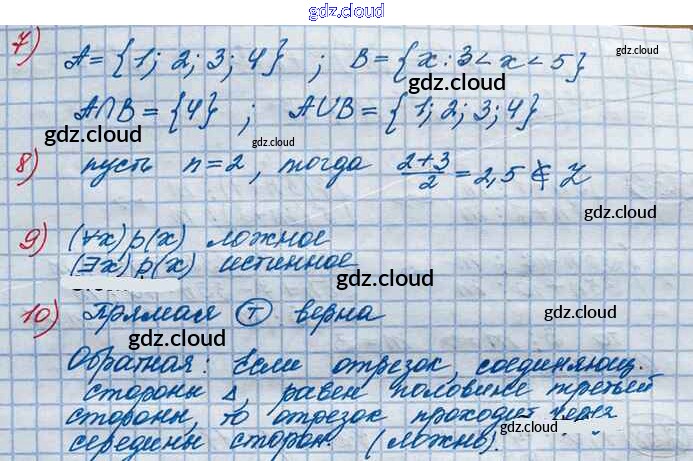 gdz.cloud
7) A = {1; 2; 3; 4} ; B = {x : 3 < x < 5}
gdz.cloud
gdz.cloud
A∩B = {4} ; A∪B = {1; 2; 3; 4}
gdz.cloud
gdz.cloud
gdz.cloud
8) пусть n = 2, тогда (2+3)/2 = 2,5 ∉ Z
gdz.cloud
9) (∀x) p(x) ложное
(∃x) p(x) истинное
gdz.cloud
10) Прямая Т верна
gdz.cloud
gdz.cloud
Обратная: Если отрезок, соединяющ.
стороны △, равен половине третьей
стороны, то отрезок проходит через
gdz.cloud
середины сторон. (ложно).